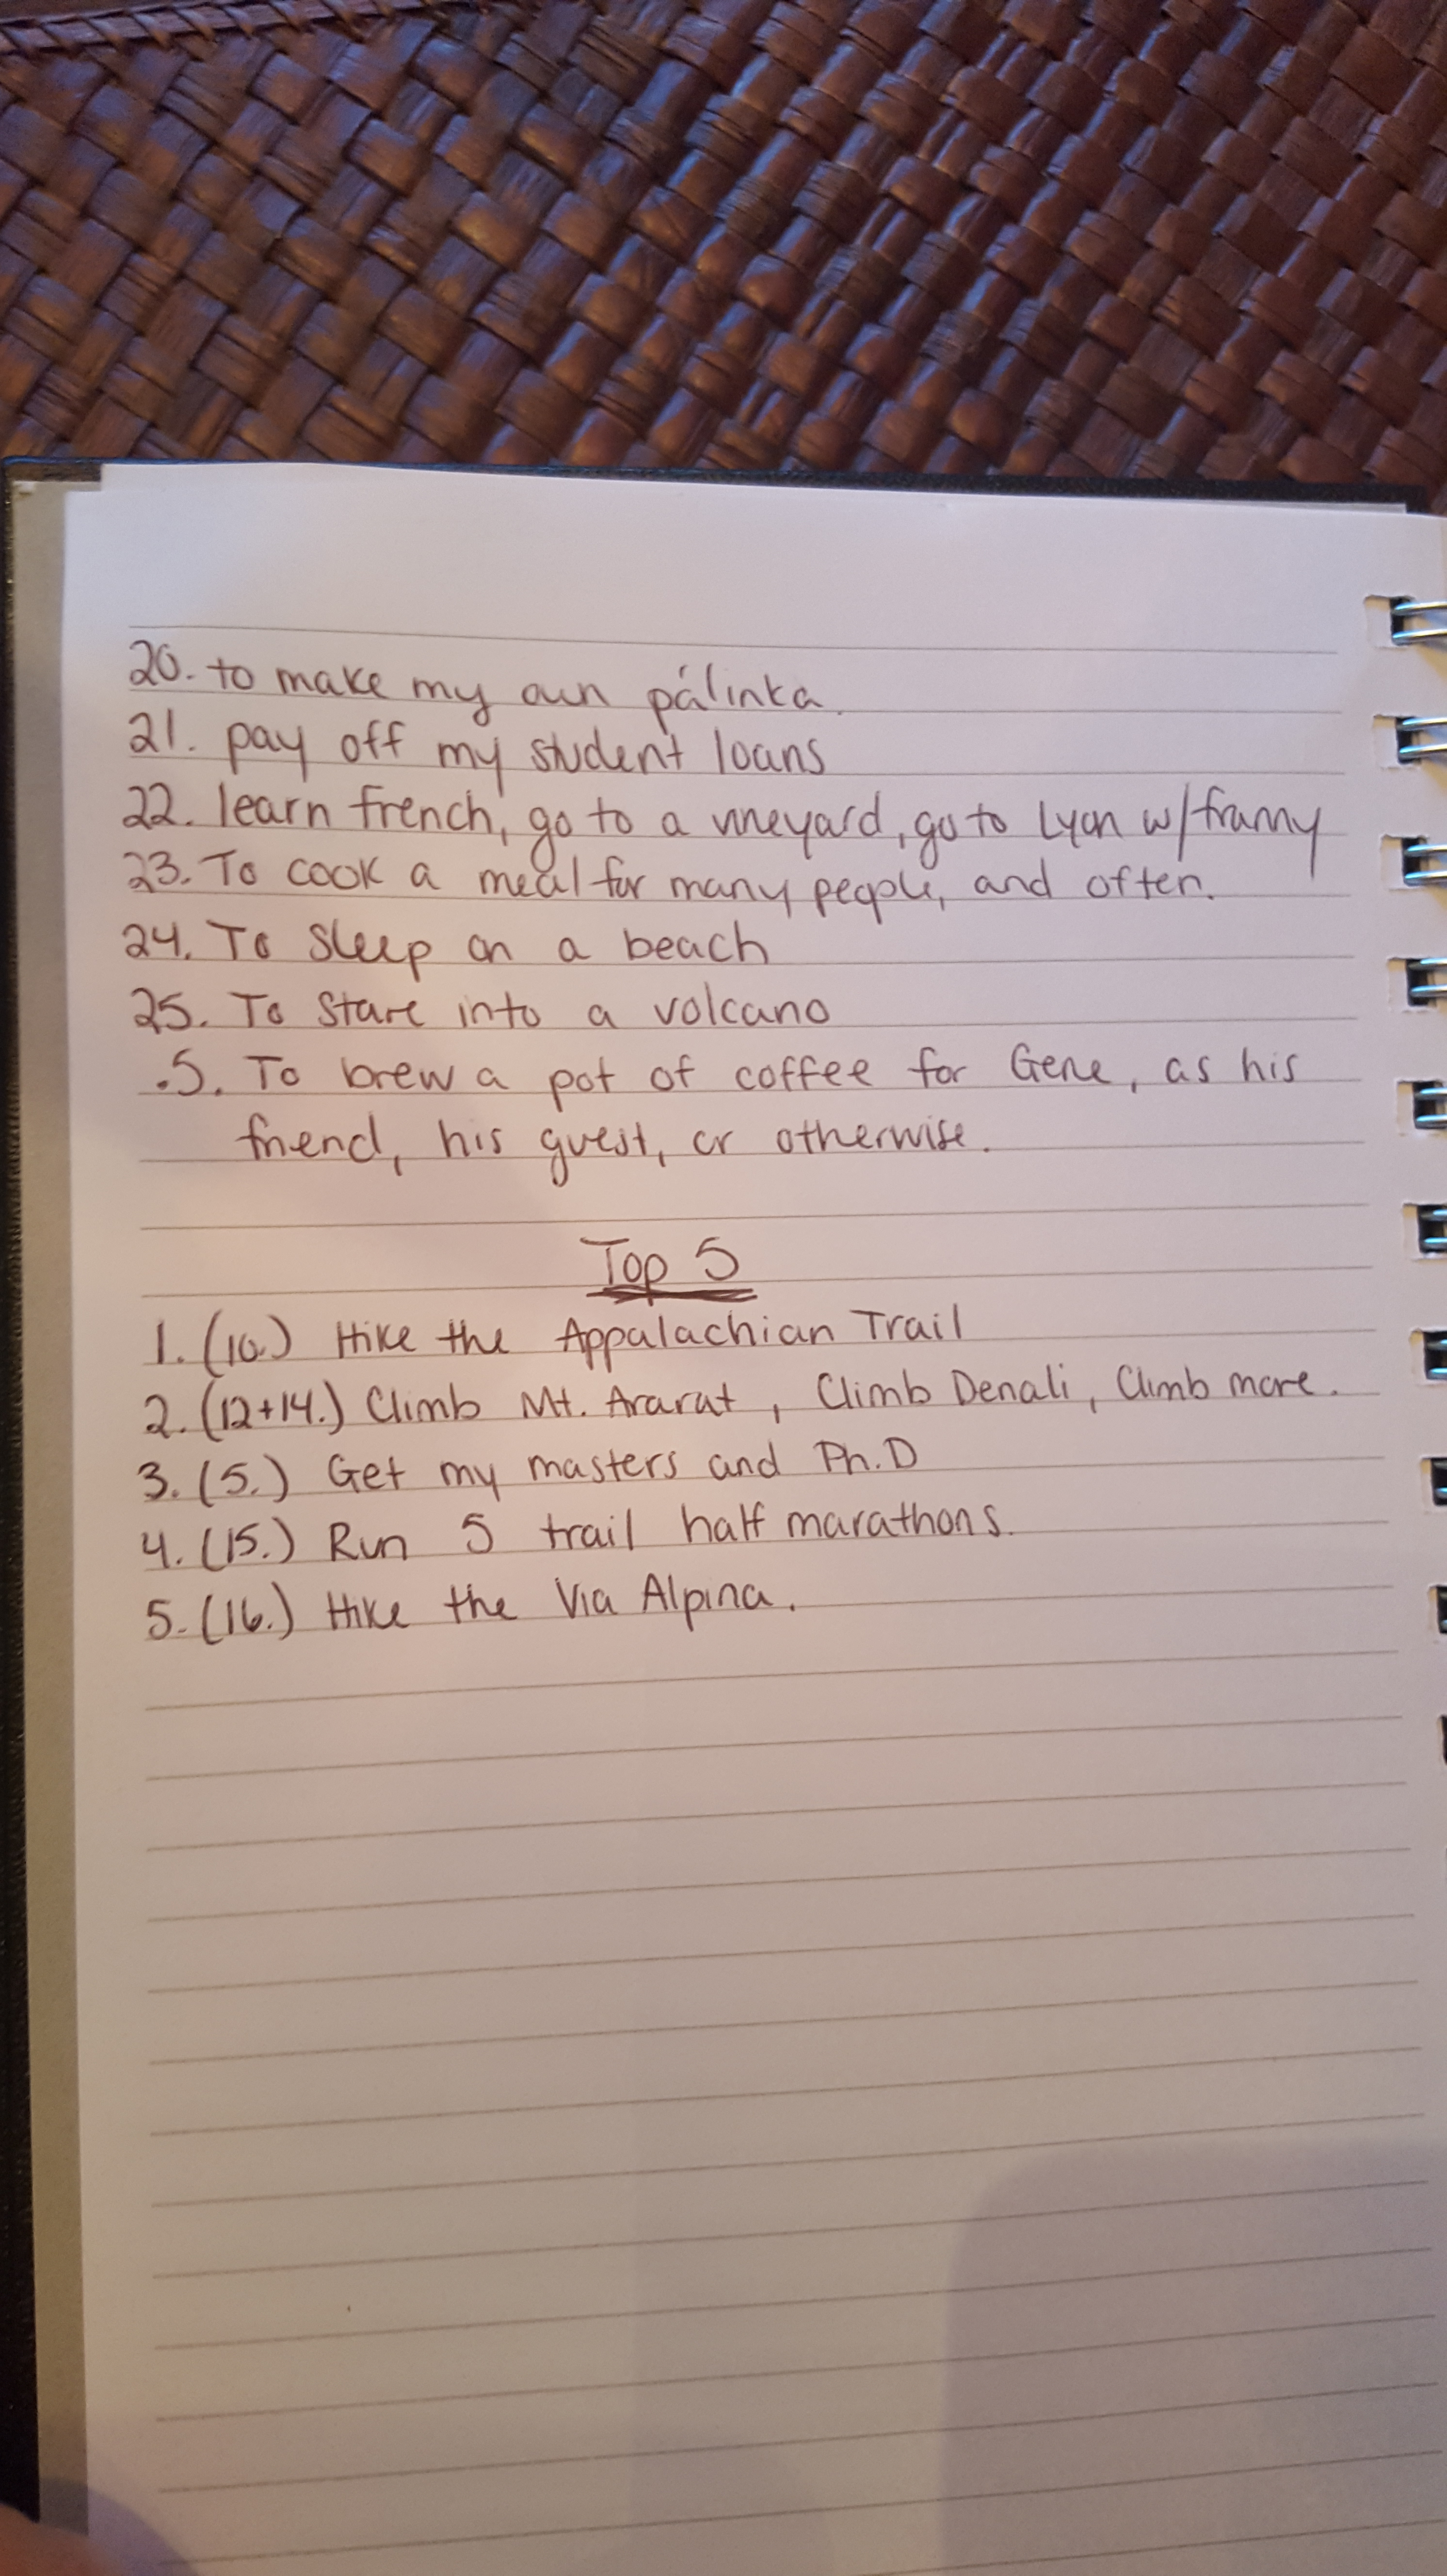 20. to make my own pálinka.
21. pay off my student loans
22. learn french, go to a vineyard, go to Lyon w/franny
23. To cook a meal for many people, and often.
24. To sleep on a beach
25. To stare into a volcano
.5. To brew a pot of coffee for Gene, as his
friend, his guest, or otherwise.
Top 5
1. (10.) Hike the Appalachian Trail
2. (12+14.) Climb Mt. Ararat, Climb Denali, Climb more.
3. (5.) Get my masters and Ph.D
4. (15.) Run 5 trail half marathons.
5. (16.) Hike the Via Alpina.